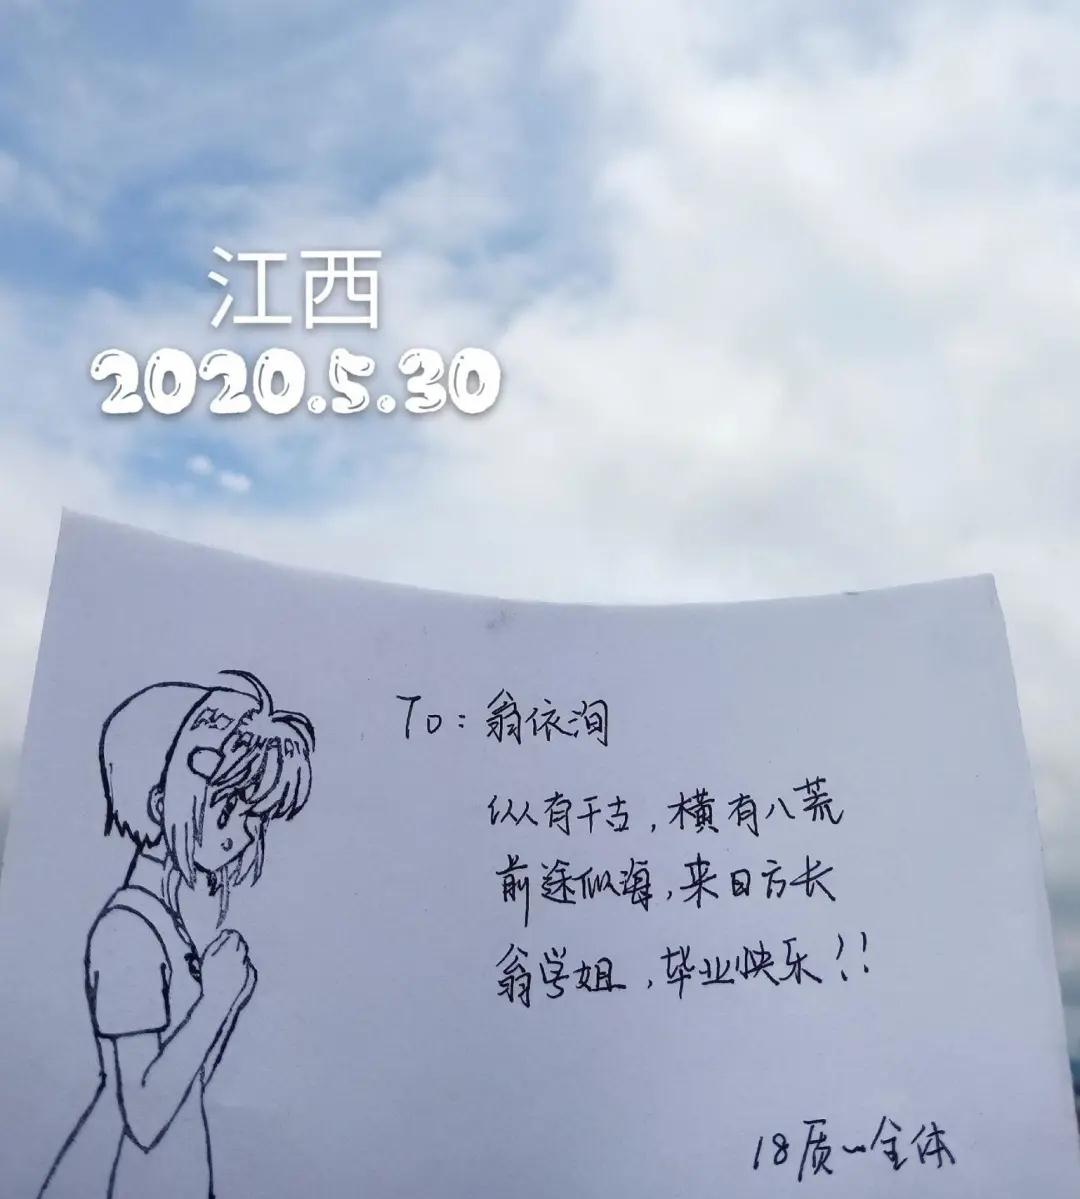 江西
2020.5.30
To：翁依洵
纵有千古，横有八荒
前途似海，来日方长
翁学姐，毕业快乐！！
18质一全体